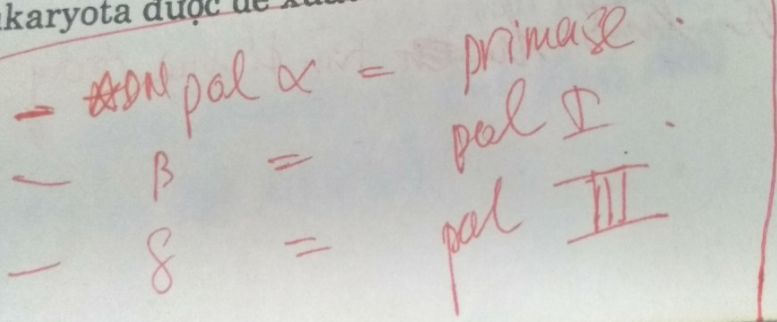 karyota được đề xuấ
- ADN pol α = primase.
- β = pol I.
- δ = pol III